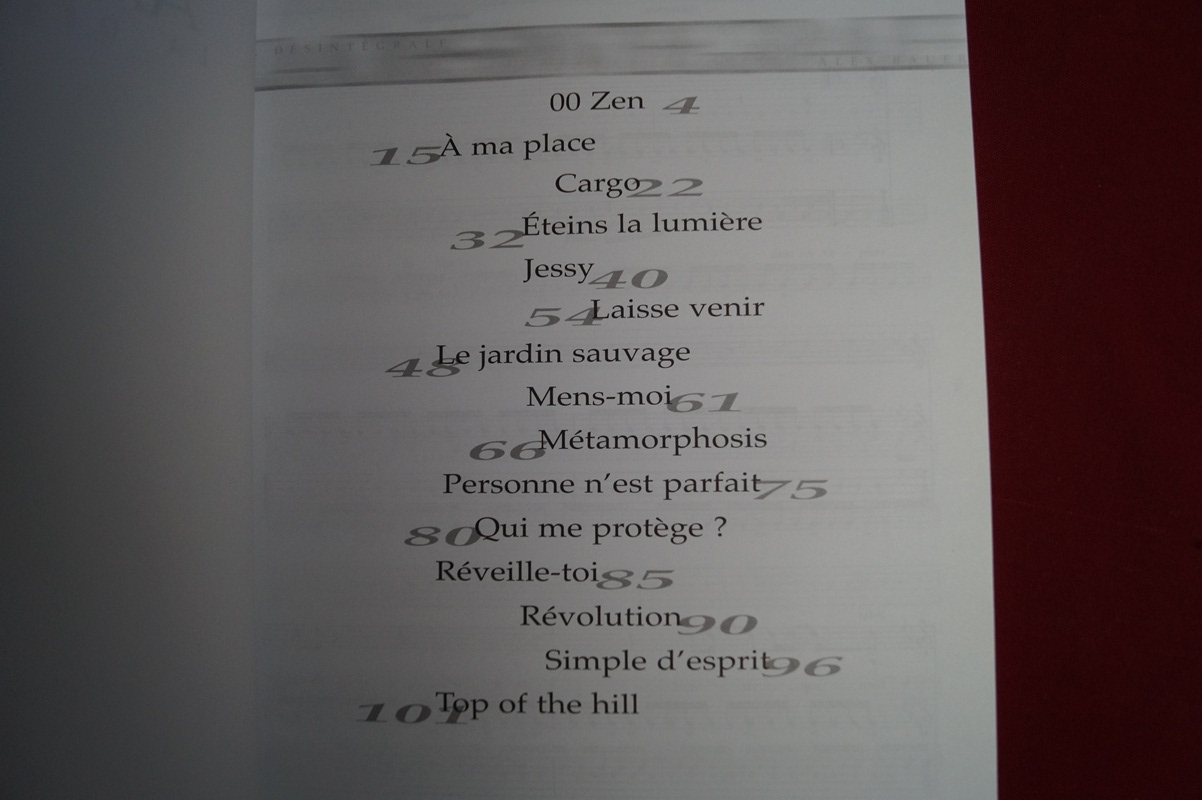 DÉSINTÉGRALE
00 Zen 4
15 À ma place
Cargo 22
32 Éteins la lumière
Jessy 40
54 Laisse venir
48 Le jardin sauvage
Mens-moi 61
66 Métamorphosis
Personne n'est parfait 75
80 Qui me protège ?
Réveille-toi 85
Révolution 90
Simple d'esprit 96
101 Top of the hill